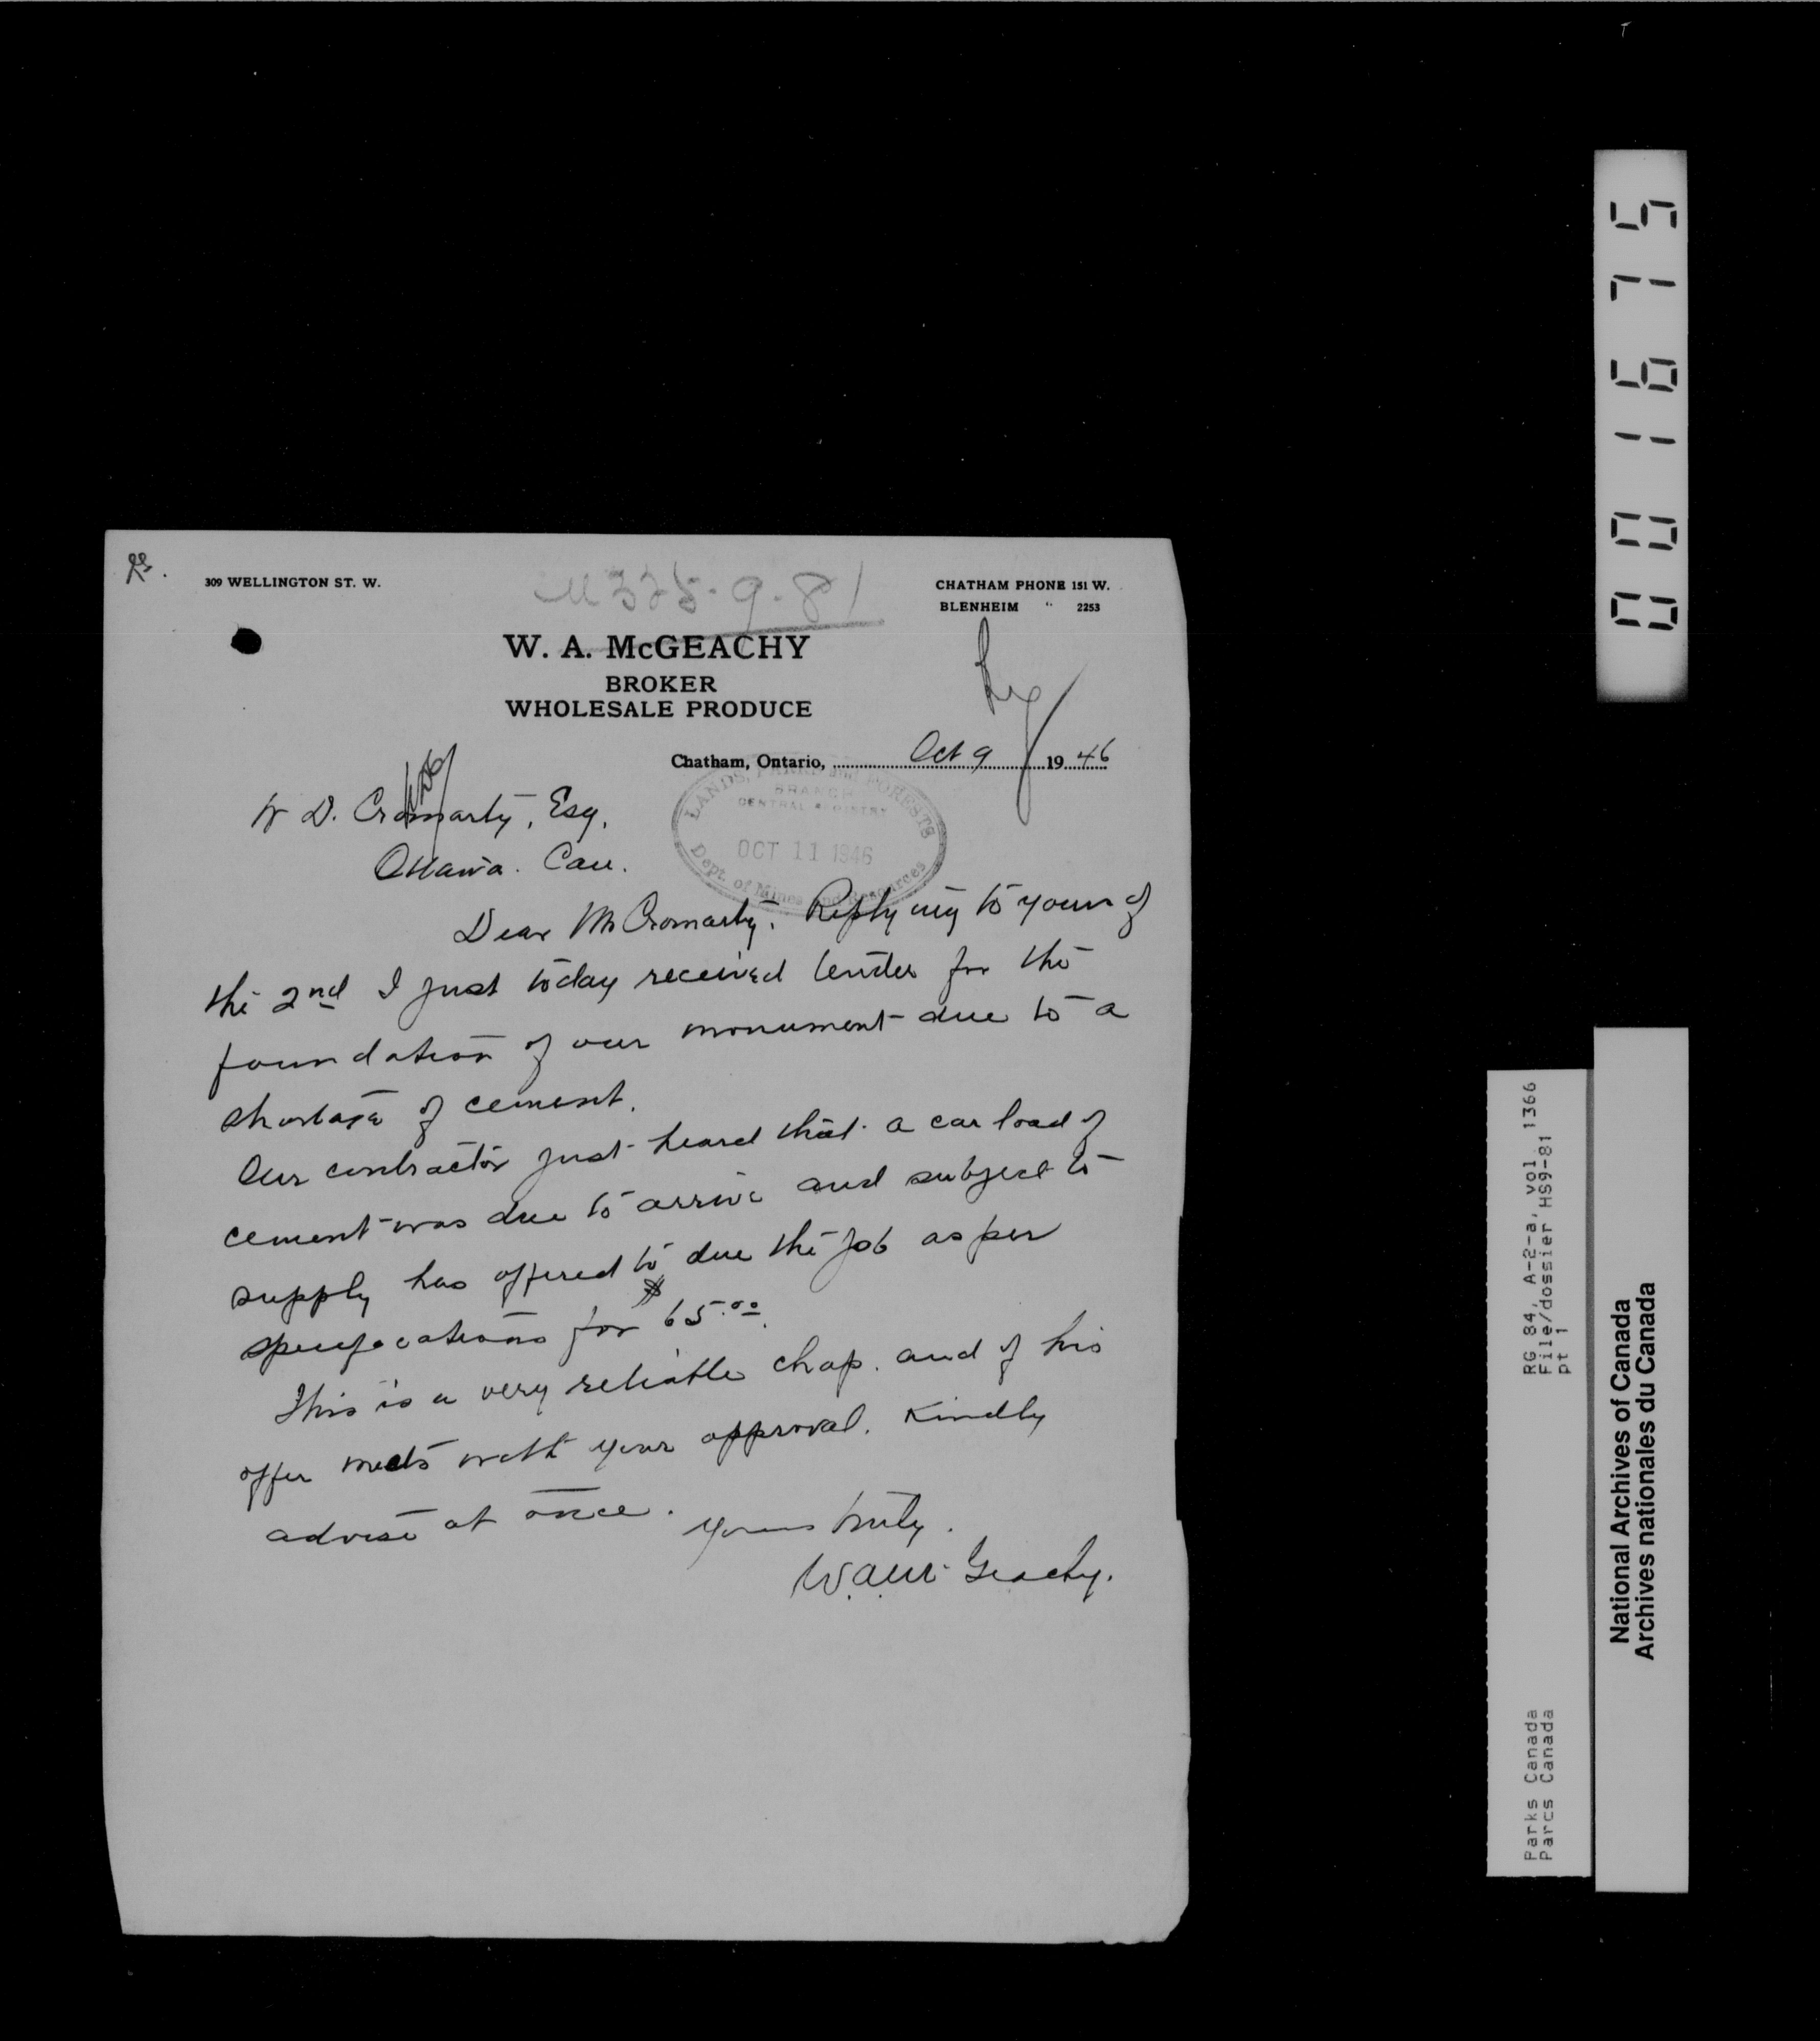 309 WELLINGTON ST. W.
CHATHAM PHONE 151 W.
BLENHEIM " 2253
W. A. McGEACHY
BROKER
WHOLESALE PRODUCE
Chatham, Ontario, Oct 9 1946
W D. Cromarty, Esq.
Ottawa. Can.
LANDS, PARKS and FORESTS
BRANCH
CENTRAL REGISTRY
OCT 11 1946
Dept. of Mines and Resources
Dear Mr Cromarty, Replying to yours of
the 2nd I just today received tender for the
foundation of our monument due to a
shortage of cement.
Our contractor just heard that a car load of
cement was due to arrive and subject to
supply has offered to due the job as per
specifications for $65.00.
This is a very reliable chap. and if his
offer meets with your approval. Kindly
advise at once.
Yours truly.
W.A. McGeachy.
001675
RG 84, A-2-a, vol. 1366
File/dossier HS9-81
pt 1
Parks Canada
Parcs Canada
National Archives of Canada
Archives nationales du Canada